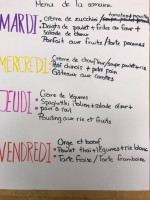 Menu de la semaine
MARDI: Crème de zucchini /
Doigts de poulet + frites au four +
Salade de choux
Parfait aux fruits / tarte pacanes
MERCREDI: Crème de choufleur / soupe poulet + riz
+ petit pain
Gâteaux aux carottes
JEUDI: Crème de légumes
Spaghetti italien + salade césar +
pain à l'ail
Pouding aux riz et fruits
VENDREDI: Orge et boeuf
Poulet thaï + légumes + riz blanc
Tarte fraise / Tarte framboise